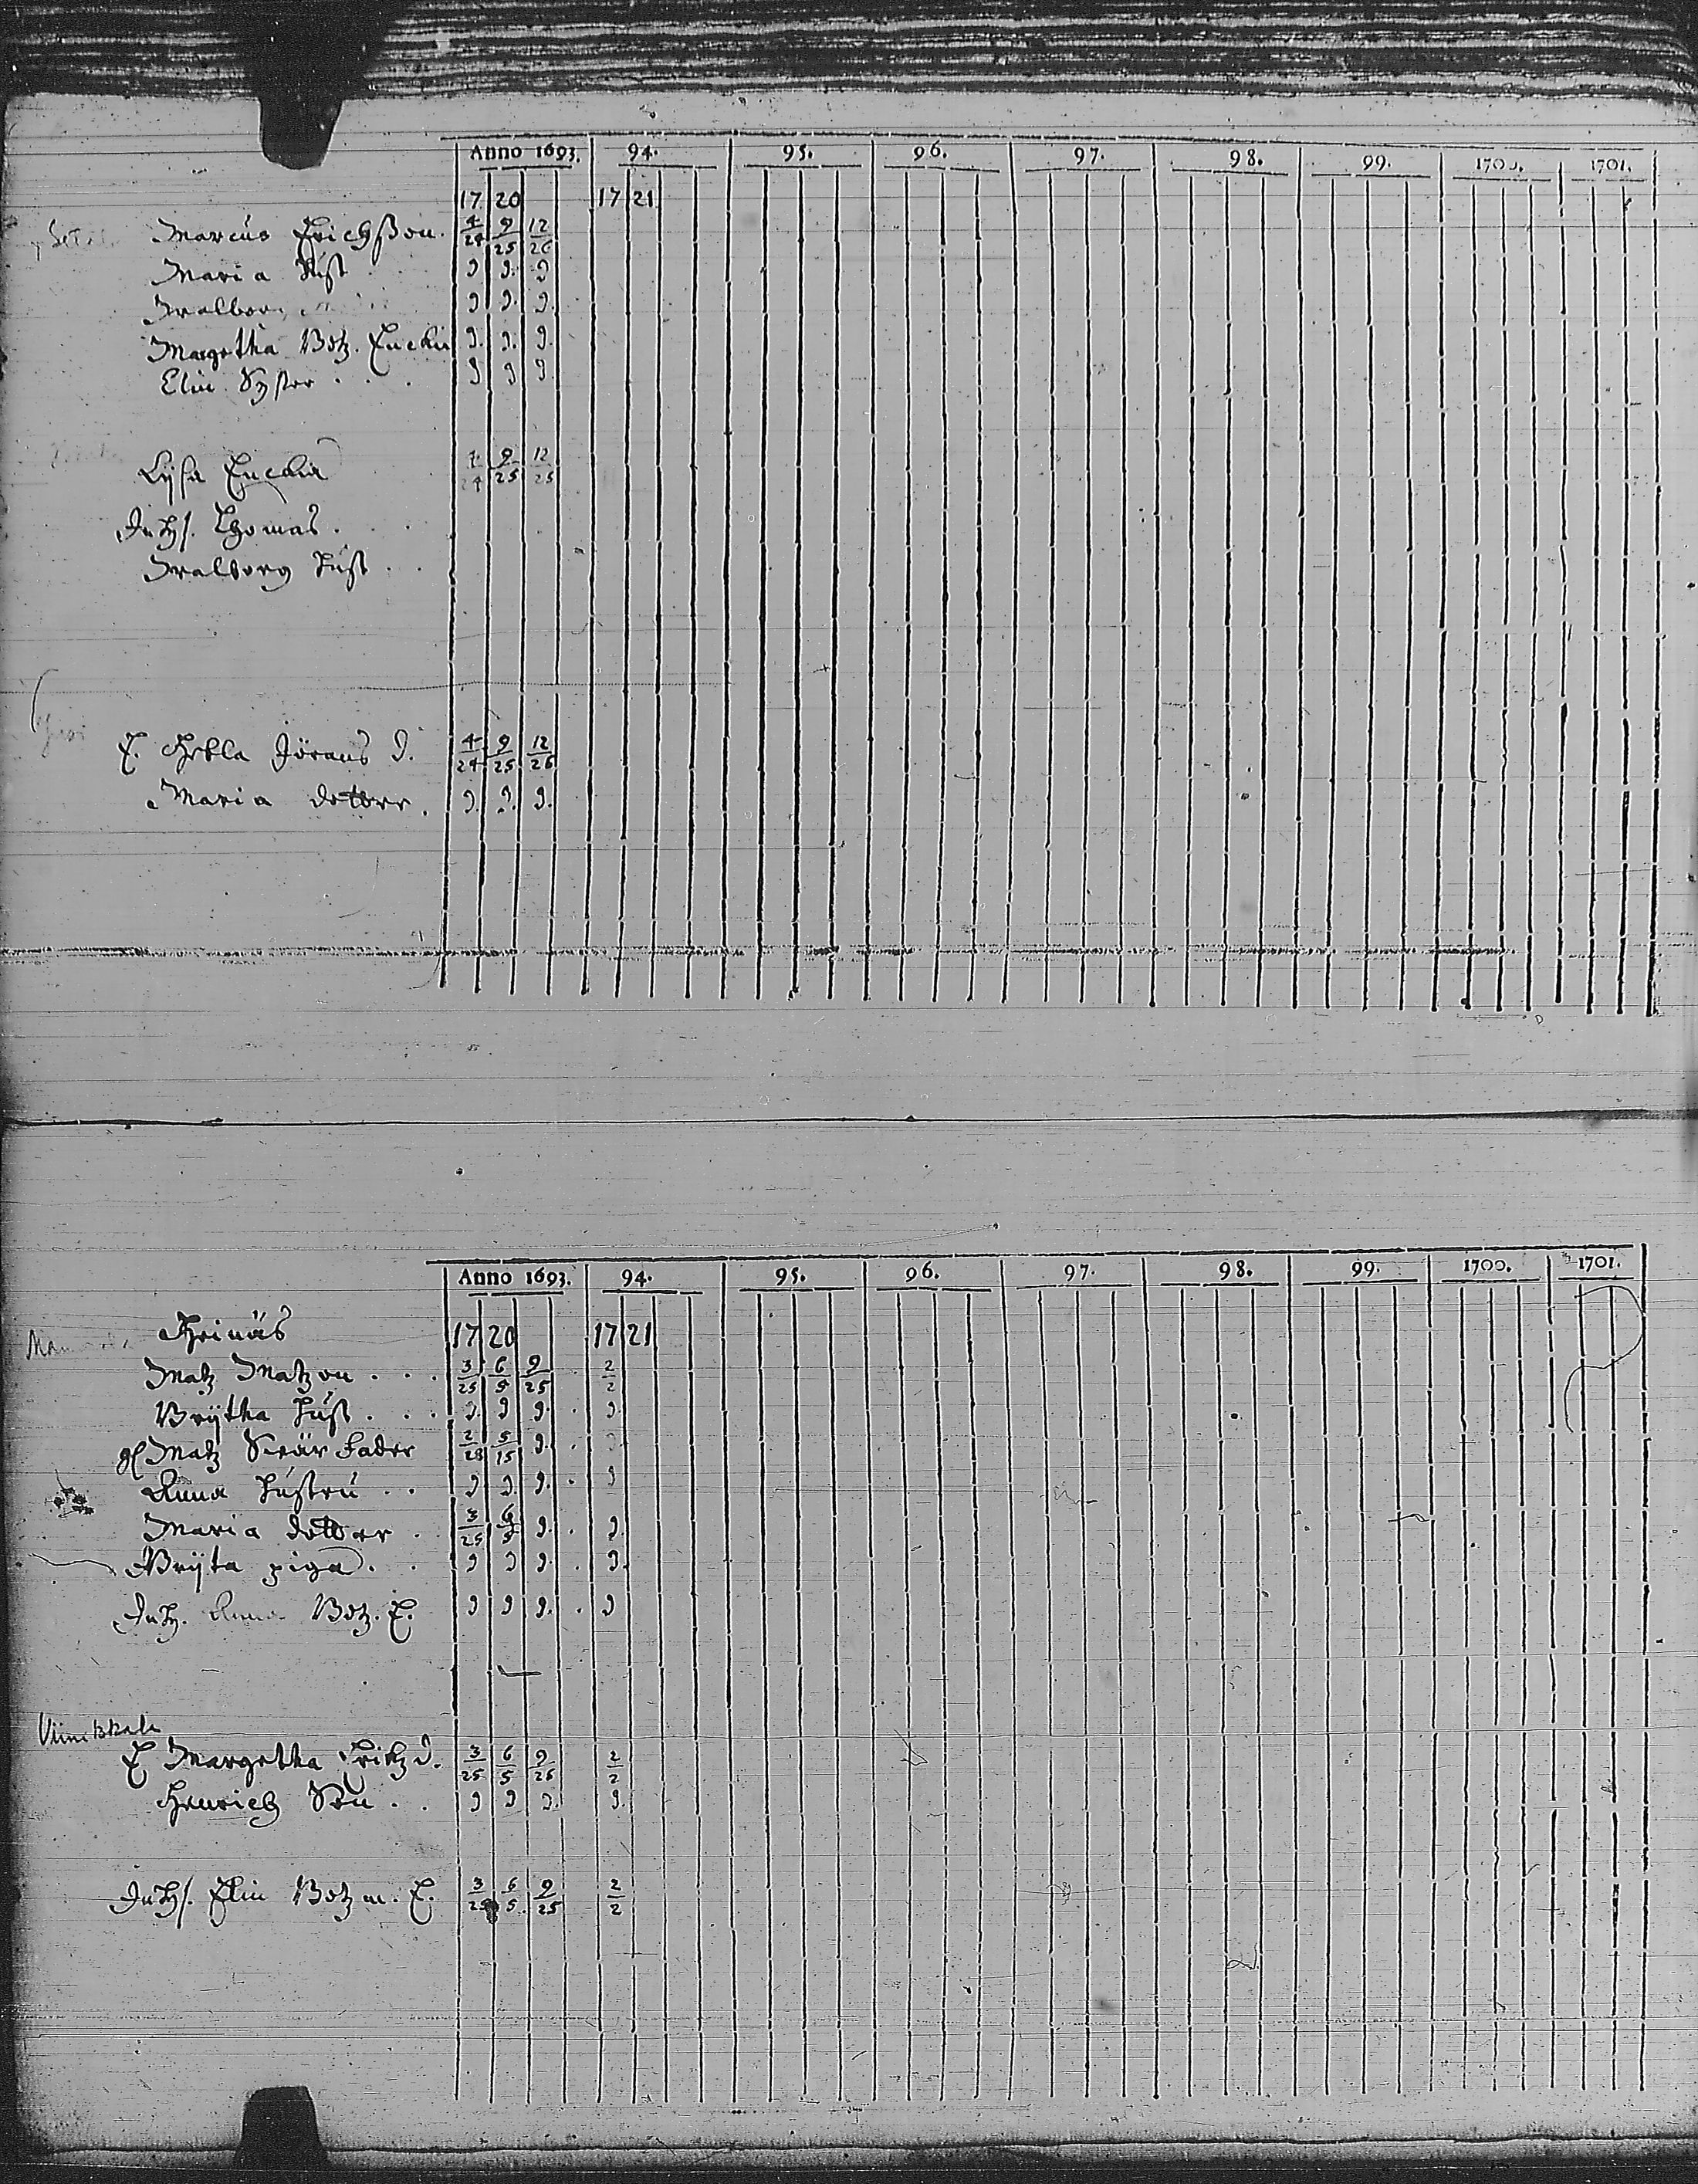 Anno 1693. 94. 95. 96. 97. 98. 99. 1700. 1701.
17 20 17 21
Marcus Erichsson. 4/24 9/25 12/26
Maria hust. 9 9. 9
Walborg 9 9. 9.
Margetha Botz. Enckia 9. 9. 9.
Elin Syster . . . 9 9 9.
Lijsa Enckia 4/24 9/25 12/25
Inhys. Thomas . . .
Walborg hust . .
E. Hebla Jörans d. 4/24 9/25 12/26
Maria dotter. 9. 9. 9.
Anno 1693. 94. 95. 96. 97. 98. 99. 1700. 1701.
Heinäs 17 20 17 21
Matz Matzon . . . 3/25 6/5 9/25 2/2
Brijtha hust . . . 9. 9 9. 9.
gl Matz Swär fader 2/28 5/15 9. 9
Anna hustru . . 9 9 9. 9
Maria dotter . 3/25 6/5 9. 9.
Brijta piga . . 9 9 9. 9.
Inh. Anna Botz. E. 9 9 9. 9
E Margetha Erichz d. 3/25 6/5 9/26 2/2
Henrich Son . . 9 9 9. 9.
Inhys. Elin Botz m. E. 3/25 6/5 9/25 2/2